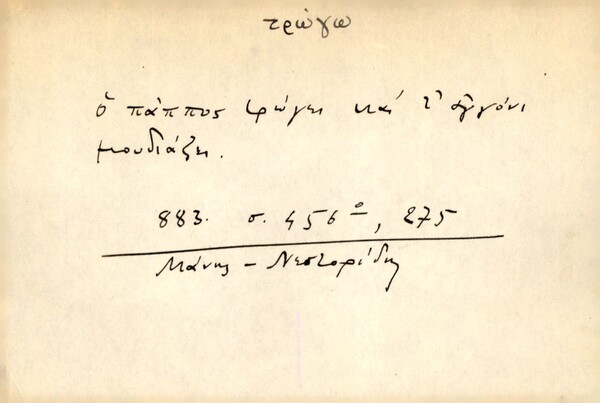 τρώγω
ὁ πάππος τρώγει καί τ' ἀγγόνι
μουδιάζει.
883. σ. 456 ο, 275
Μάνης - Νεστορίδης